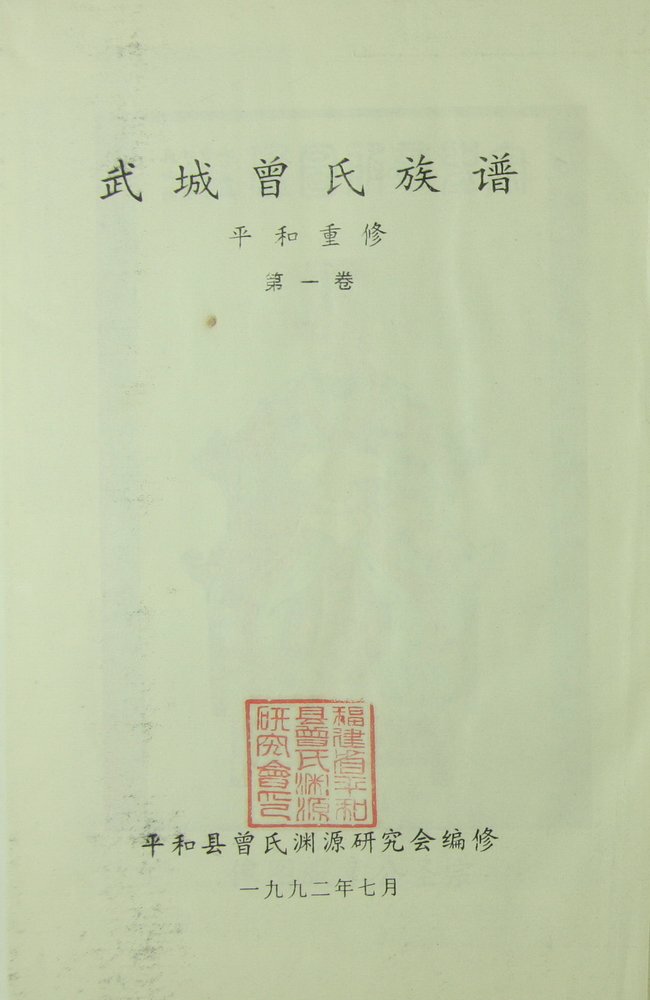 武城曾氏族谱
平和重修
第一卷
福建省平和
县曾氏渊源
研究会印
平和县曾氏渊源研究会编修
一九九二年七月